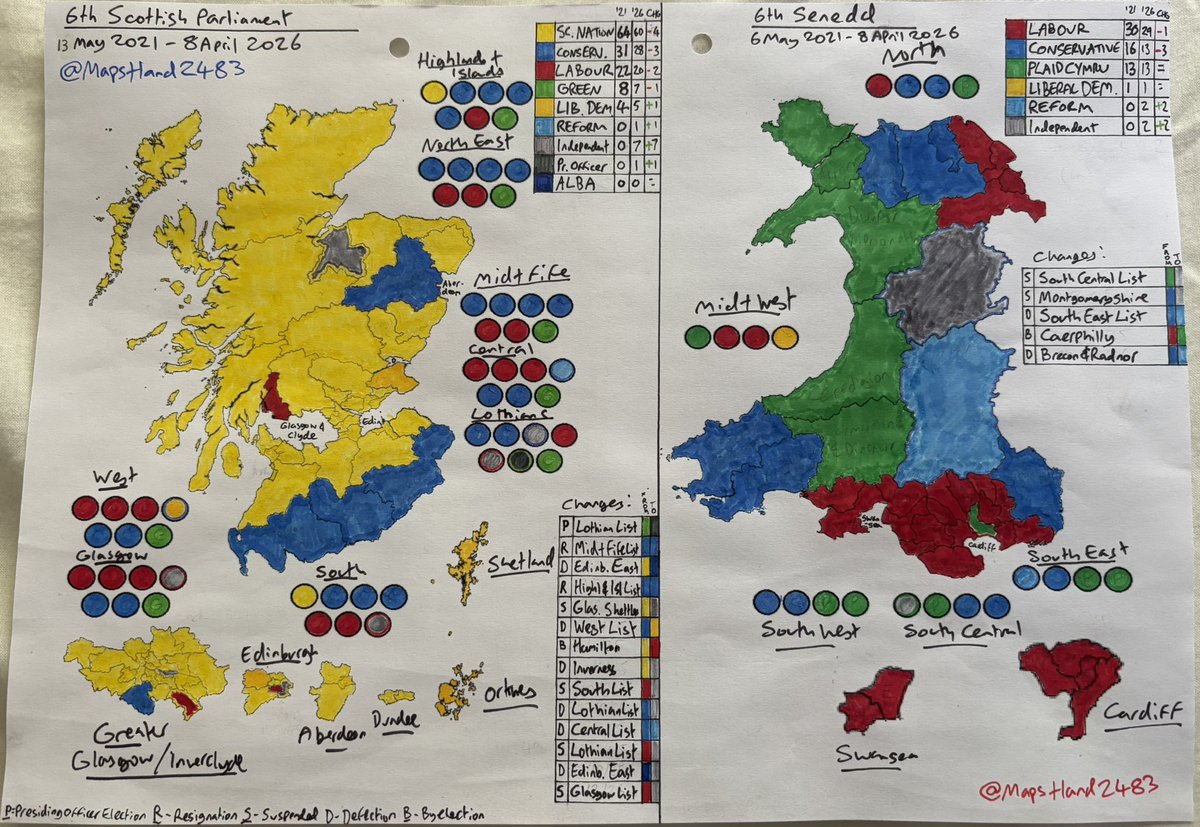 6th Scottish Parliament
13 May 2021 - 8 April 2026
@Mapstland2483
'21 '26 CHG
SC. NATION 64 60 -4
CONSERV. 31 28 -3
LABOUR 22 20 -2
GREEN 8 7 -1
LIB. DEM 4 5 +1
REFORM 0 1 +1
Independent 0 7 +7
Pr. Officer 0 1 +1
ALBA 0 0 =
Highlands +
Islands
North East
Mid + Fife
Central
Lothians
Aber-
deen
Glasgow &
Clyde
Edin
West
Glasgow
South
Shetland
Orkney
Edinburgh
Aberdeen
Dundee
Greater
Glasgow/Inverclyde
Changes:
FROM TO
P Lothian List
R Mid + Fife List
D Edinb. East
R Highl & Isl List
S Glas. Shettles
D West List
B Hamilton
D Inverness
S South List
D Lothian List
D Central List
S Lothian List
D Edinb. East
S Glasgow List
P-Presiding Officer Election R-Resignation S-Suspended D-Defection B-Byelection
6th Senedd
6 May 2021 - 8 April 2026
'21 '26 CHG
LABOUR 30 29 -1
CONSERVATIVE 16 13 -3
PLAID CYMRU 13 13 =
LIBERAL DEM. 1 1 =
REFORM 0 2 +2
Independent 0 2 +2
North
Mid + West
Changes:
FROM TO
S South Central List
S Montgomeryshire
D South East List
B Caerphilly
D Brecon & Radnor
Swan
sea
Cardiff
South East
South West
South Central
Swansea
Cardiff
@Mapstland2483